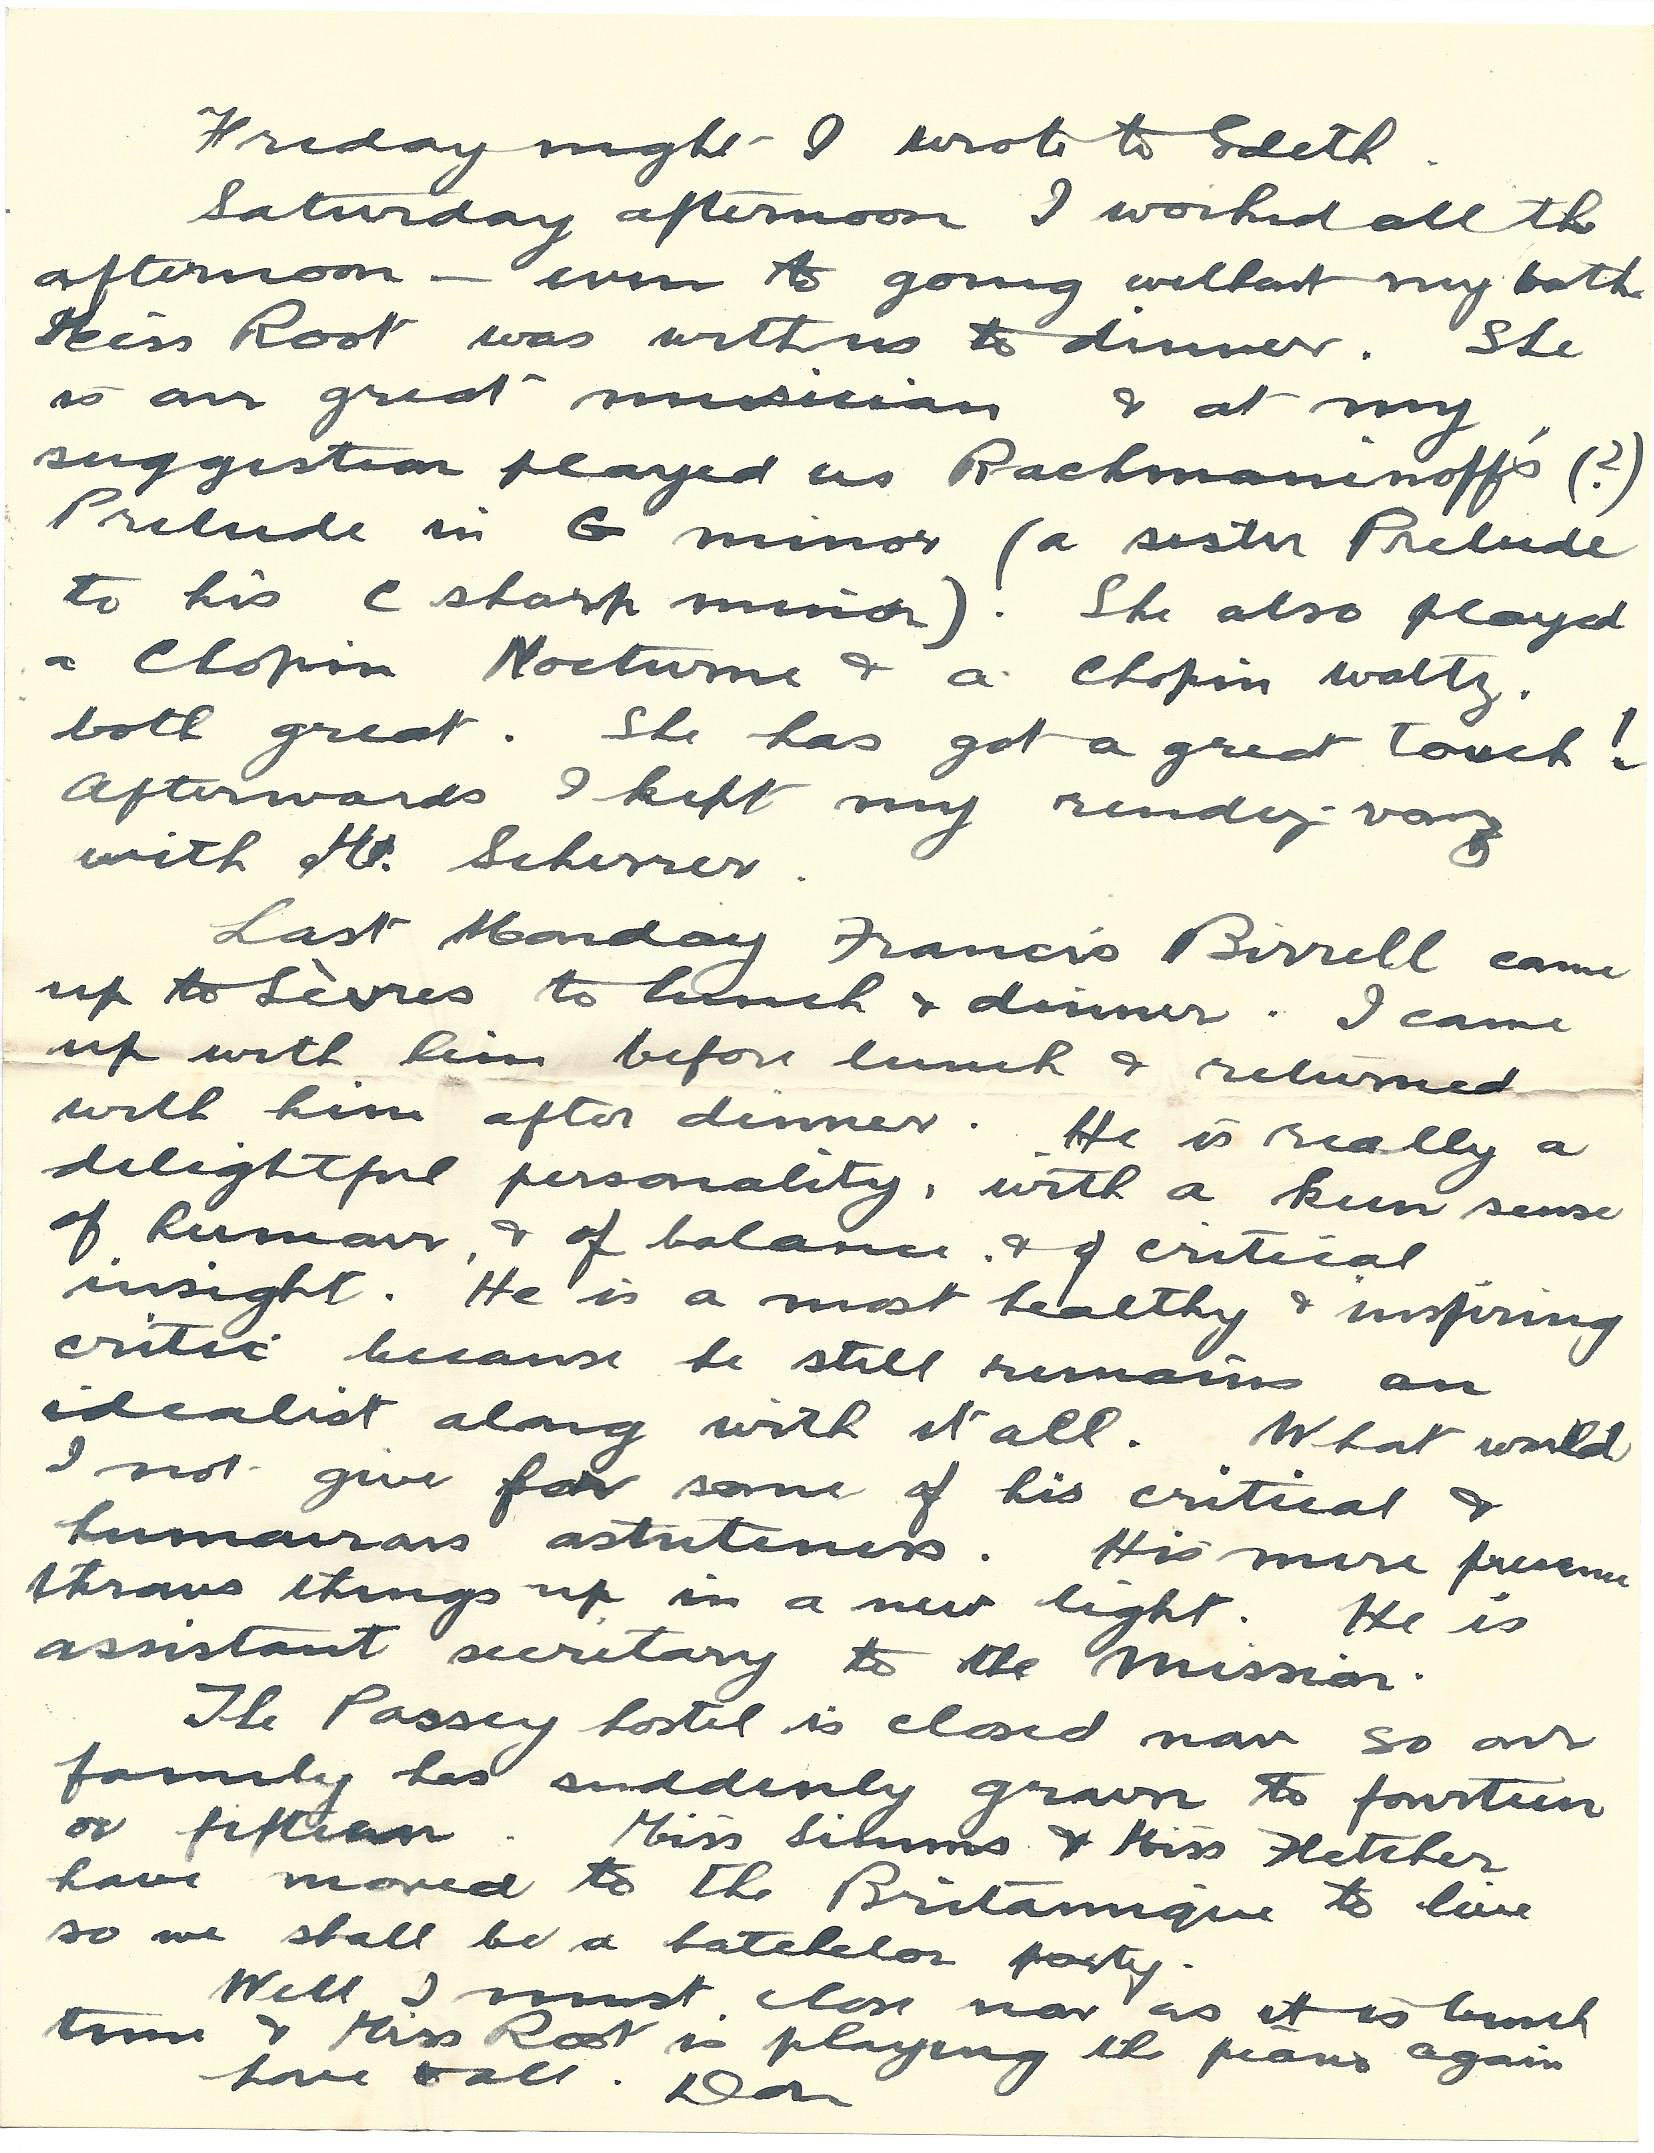 Friday night I wrote to Edith.
Saturday afternoon I worked all the
afternoon — even to going without my bath.
Miss Root was with us to dinner. She
is our great musician & at my
suggestion played us Rachmaninoff's (?)
Prelude in G minor (a sister Prelude
to his C sharp minor). She also played
a Chopin Nocturne & a Chopin waltz.
both great. She has got a great touch!
Afterwards I kept my rendez-vouz
with Mr. Scherrer.
Last Monday Francis Birrell came
up to Sèvres to lunch & dinner. I came
up with him before lunch & returned
with him after dinner. He is really a
delightful personality, with a keen sense
of humour, & of balance, & of critical
insight. He is a most healthy & inspiring
critic because he still remains an
idealist along with it all. What would
I not give for some of his critical &
humourous astuteness. His mere presence
throws things up in a new light. He is
assistant secretary to the Mission.
The Passey hostel is closed now so our
family has suddenly grown to fourteen
or fifteen. Miss Simms & Miss Fletcher
have moved to the Britannique to live
so we shall be a batchelor party.
Well I must close now as it is lunch
time & Miss Root is playing the piano again
Love to all. Don